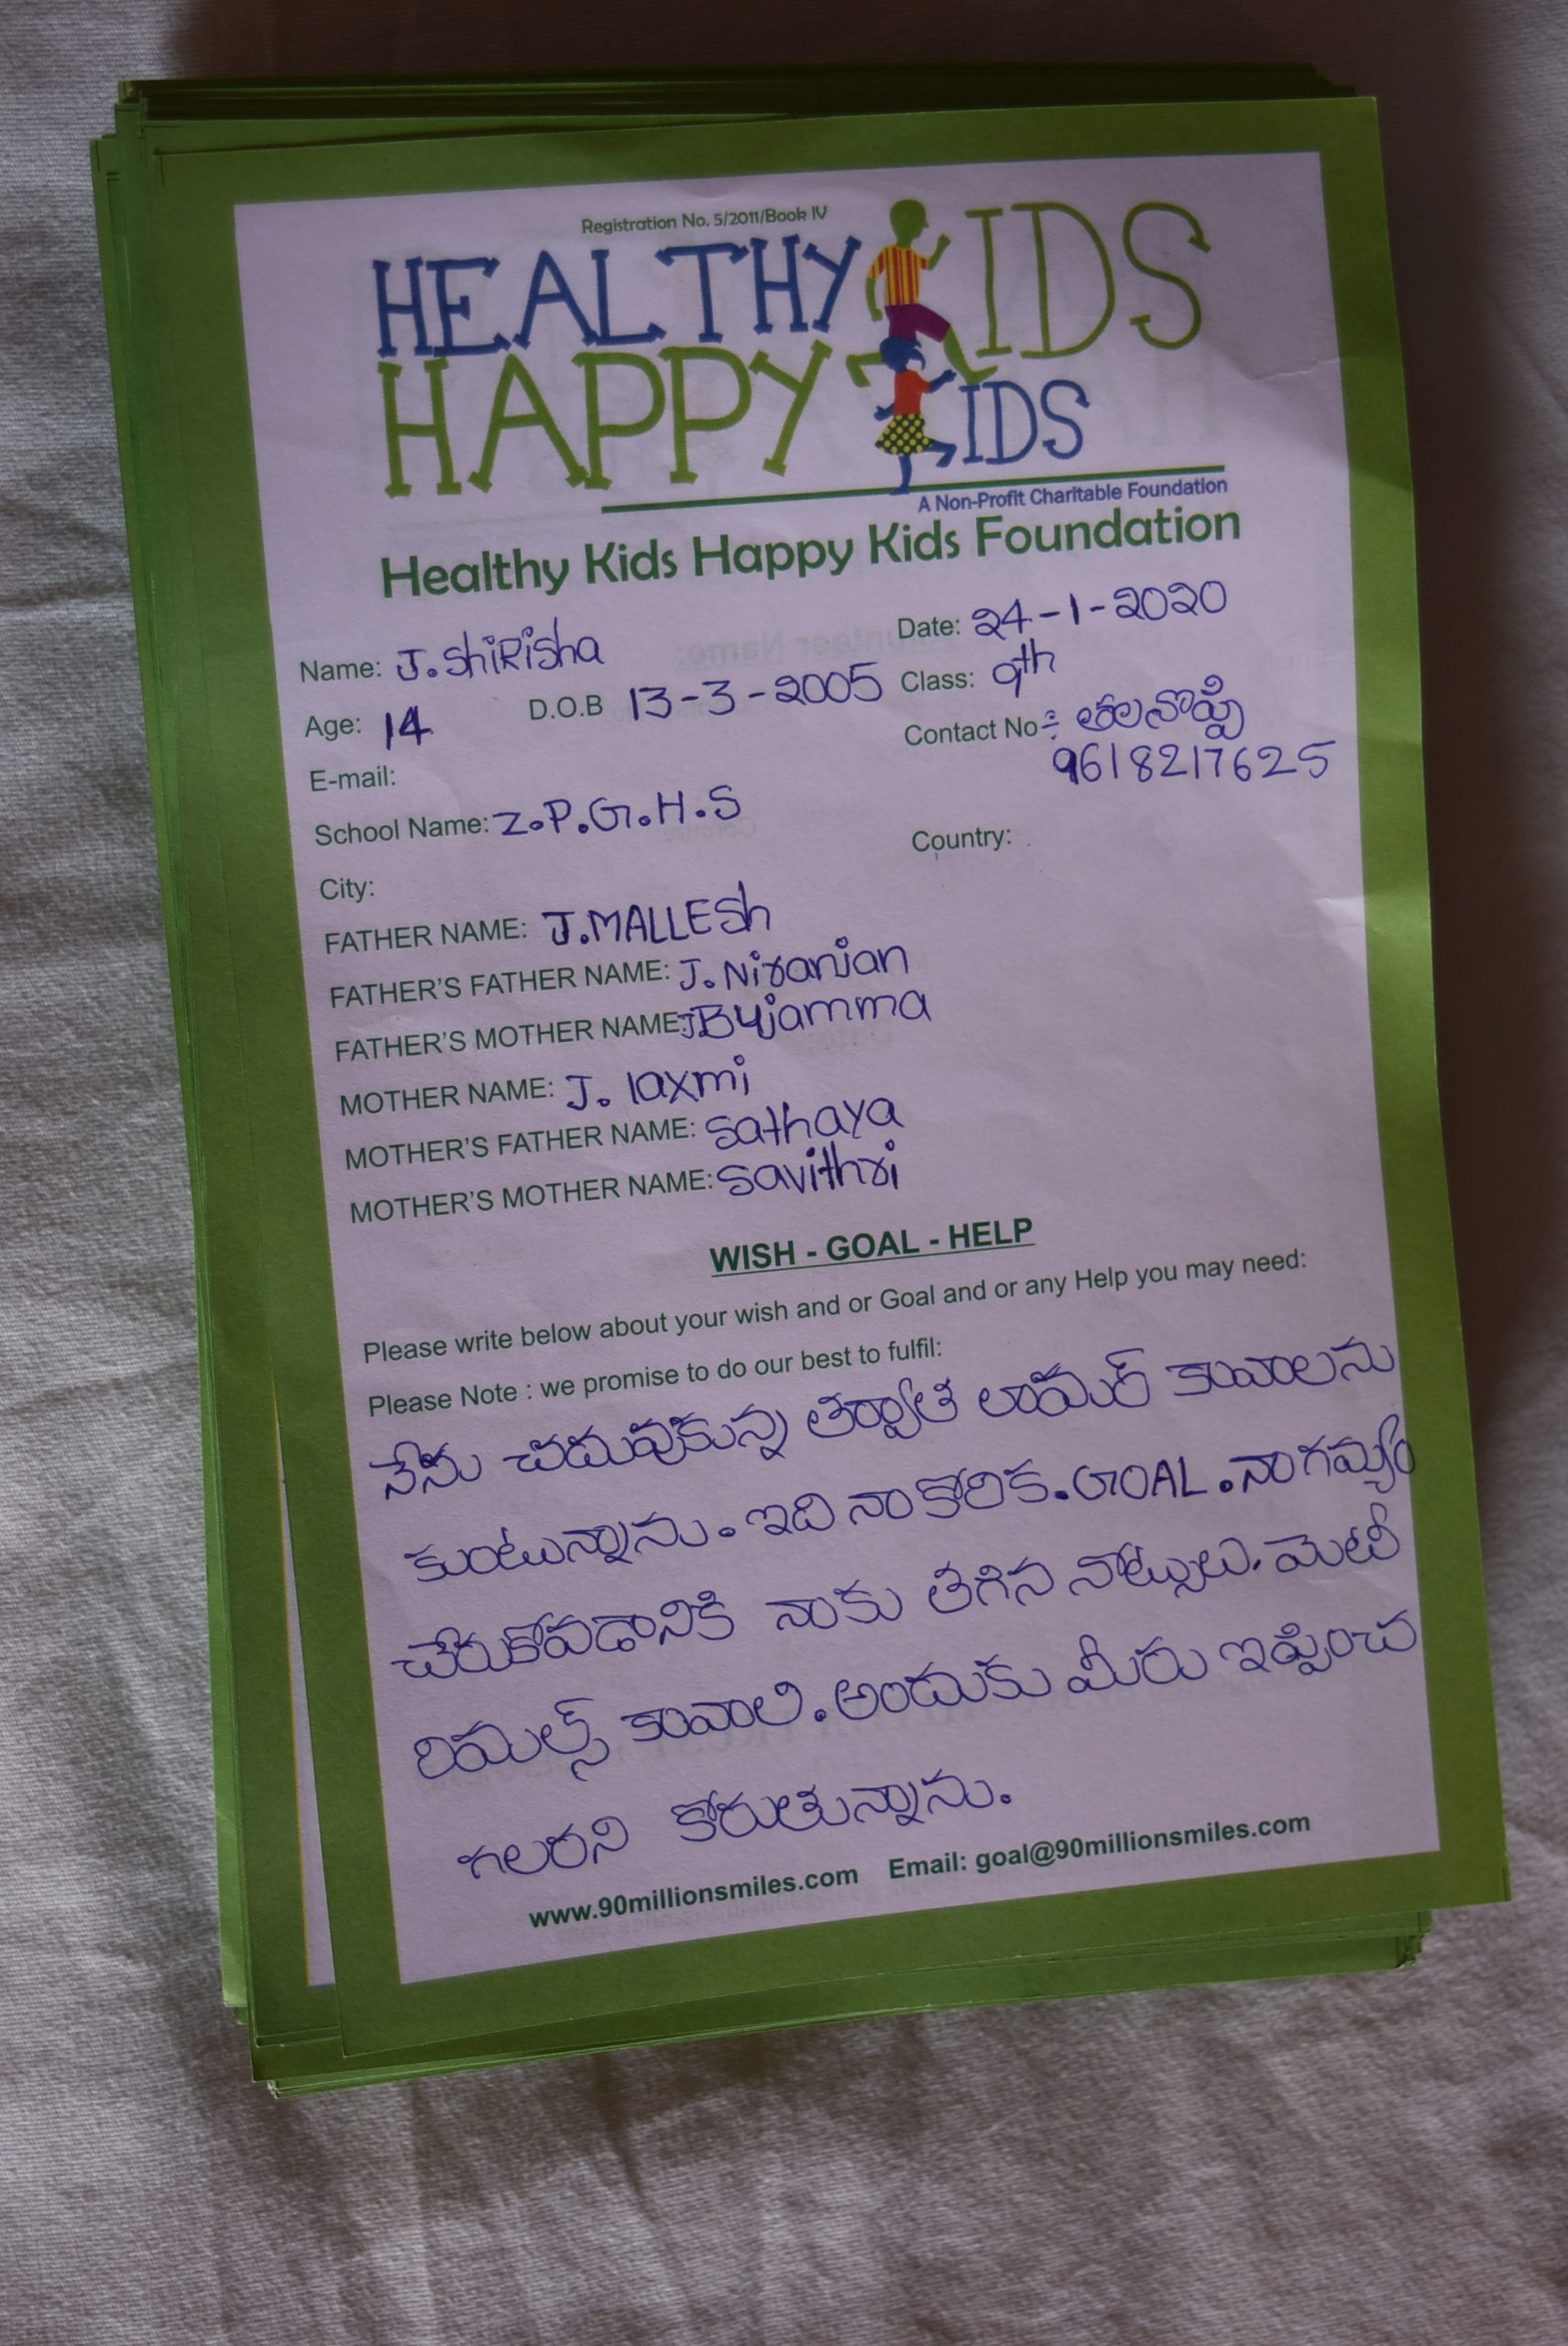 Registration No. 5/2011/Book IV
HEALTHY KIDS
HAPPY KIDS
A Non-Profit Charitable Foundation
Healthy Kids Happy Kids Foundation
Name: J.ShiRisha Date: 24-1-2020
Age: 14 D.O.B 13-3-2005 Class: 9th
E-mail: Contact No: తలనొప్పి
9618217625
School Name: Z.P.G.H.S
City: Country:
FATHER NAME: J.MALLESh
FATHER'S FATHER NAME: J. Niranjan
FATHER'S MOTHER NAME: J.Bujamma
MOTHER NAME: J. laxmi
MOTHER'S FATHER NAME: Sathaya
MOTHER'S MOTHER NAME: Savithri
WISH - GOAL - HELP
Please write below about your wish and or Goal and or any Help you may need:
Please Note : we promise to do our best to fulfil:
నేను చదువుకున్న తర్వాత లాయర్ కావాలను
కుంటున్నాను. ఇది నా కోరిక. GOAL. నా గమ్యం
చేరుకోవడానికి నాకు తగిన నోట్సులు. మెటీ
రియల్స్ కావాలి. అందుకు మీరు ఇప్పించ
గలరని కోరుతున్నాను.
www.90millionsmiles.com Email: goal@90millionsmiles.com